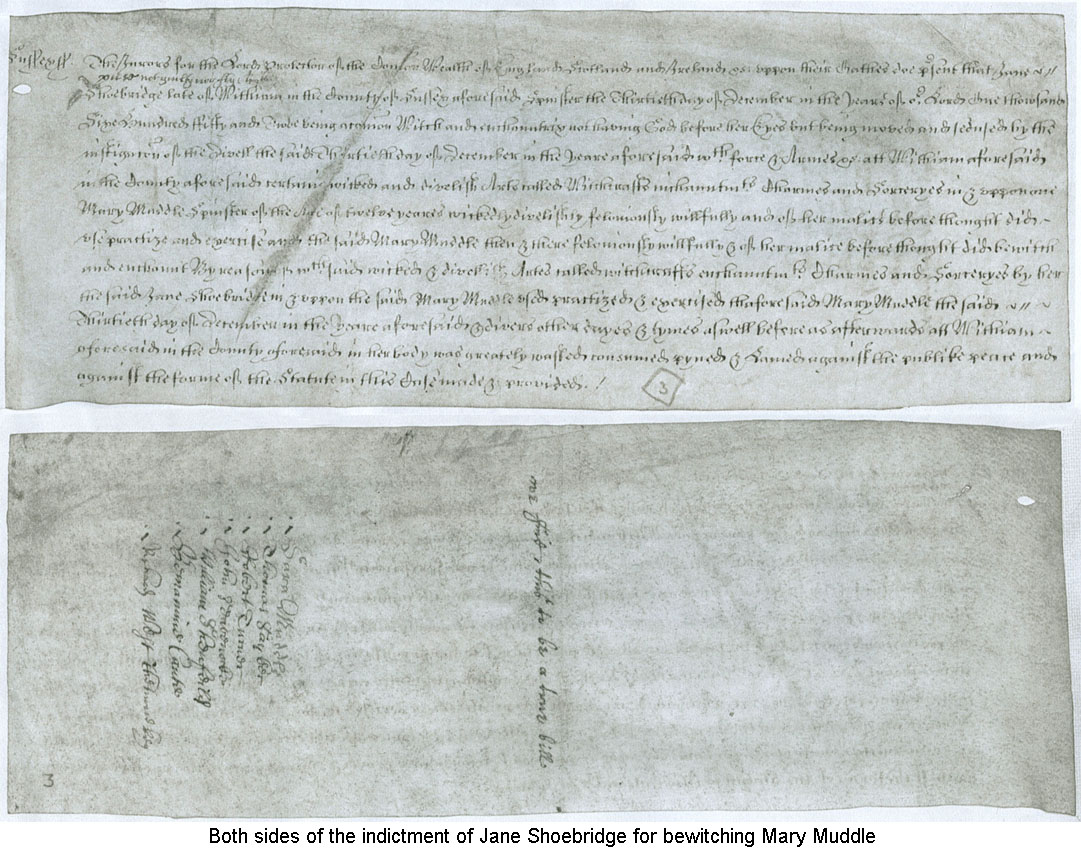 Sussex ss. The Jurors for the Lord Protector of the Comon Wealth of England Scotland and Ireland &c uppon their Oathes doe psent that Jane
put se not guilty nor fly
Shoebridge late of Withiam in the County of Sussex aforesaid Spinster the Thirtieth day of December in the Yeare of or Lord One thowsand
Sixe Hundred fifty and Twoe being a comon Witch and enchauntrix not having God before her Eyes but being moved and seduced by the
instigacon of the Divell the said Thirtieth day of December in the Yeare aforesaid wth force & Armes &c att Withiam aforesaid
in the County aforesaid certain wicked and divelish Arts called Witchcrafts inchauntmts Charmes and Sorceryes in & uppon one
Mary Muddle Spinster of the Age of twelve yeares wickedly divelishly feloniously willfully and of her malice before thought did
use practize and exercise and the said Mary Muddle then & there feloniously willfully & of her malice before thought did bewitch
and enchaunt By reason of wch said wicked & divelish Artes called witchcrafts enchauntmts Charmes and Sorceryes by her
the said Jane Shoebridge in & uppon the said Mary Muddle used practized & exercised thaforesaid Mary Muddle the said
Thirtieth day of December in the Yeare aforesaid & divers other dayes & tymes aswell before as afterwards att Withiam
aforesaid in the County aforesaid in her body was greately wasted consumed pyned & Lamed against the publike peace and
against the forme of the Statute in this Case made & provided
3
Sara Muddle
Thomas
Robert Turner
John
William
Richard
we find this to be a true bill
3
Both sides of the indictment of Jane Shoebridge for bewitching Mary Muddle